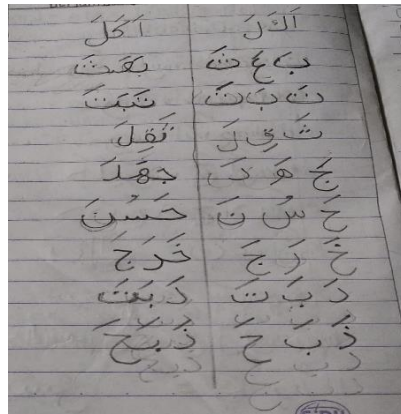 اَ كَ لَ اَكَلَ
بَ عَ ثَ بَعَثَ
ثَ بَ تَ ثَبَتَ
ثَ قِ لَ ثَقِلَ
جَ هَ دَ جَهَدَ
حَ سُ نَ حَسُنَ
خَ رَ جَ خَرَجَ
دَ بَ تَ دَبَتَ
ذَ بَ حَ ذَبَحَ